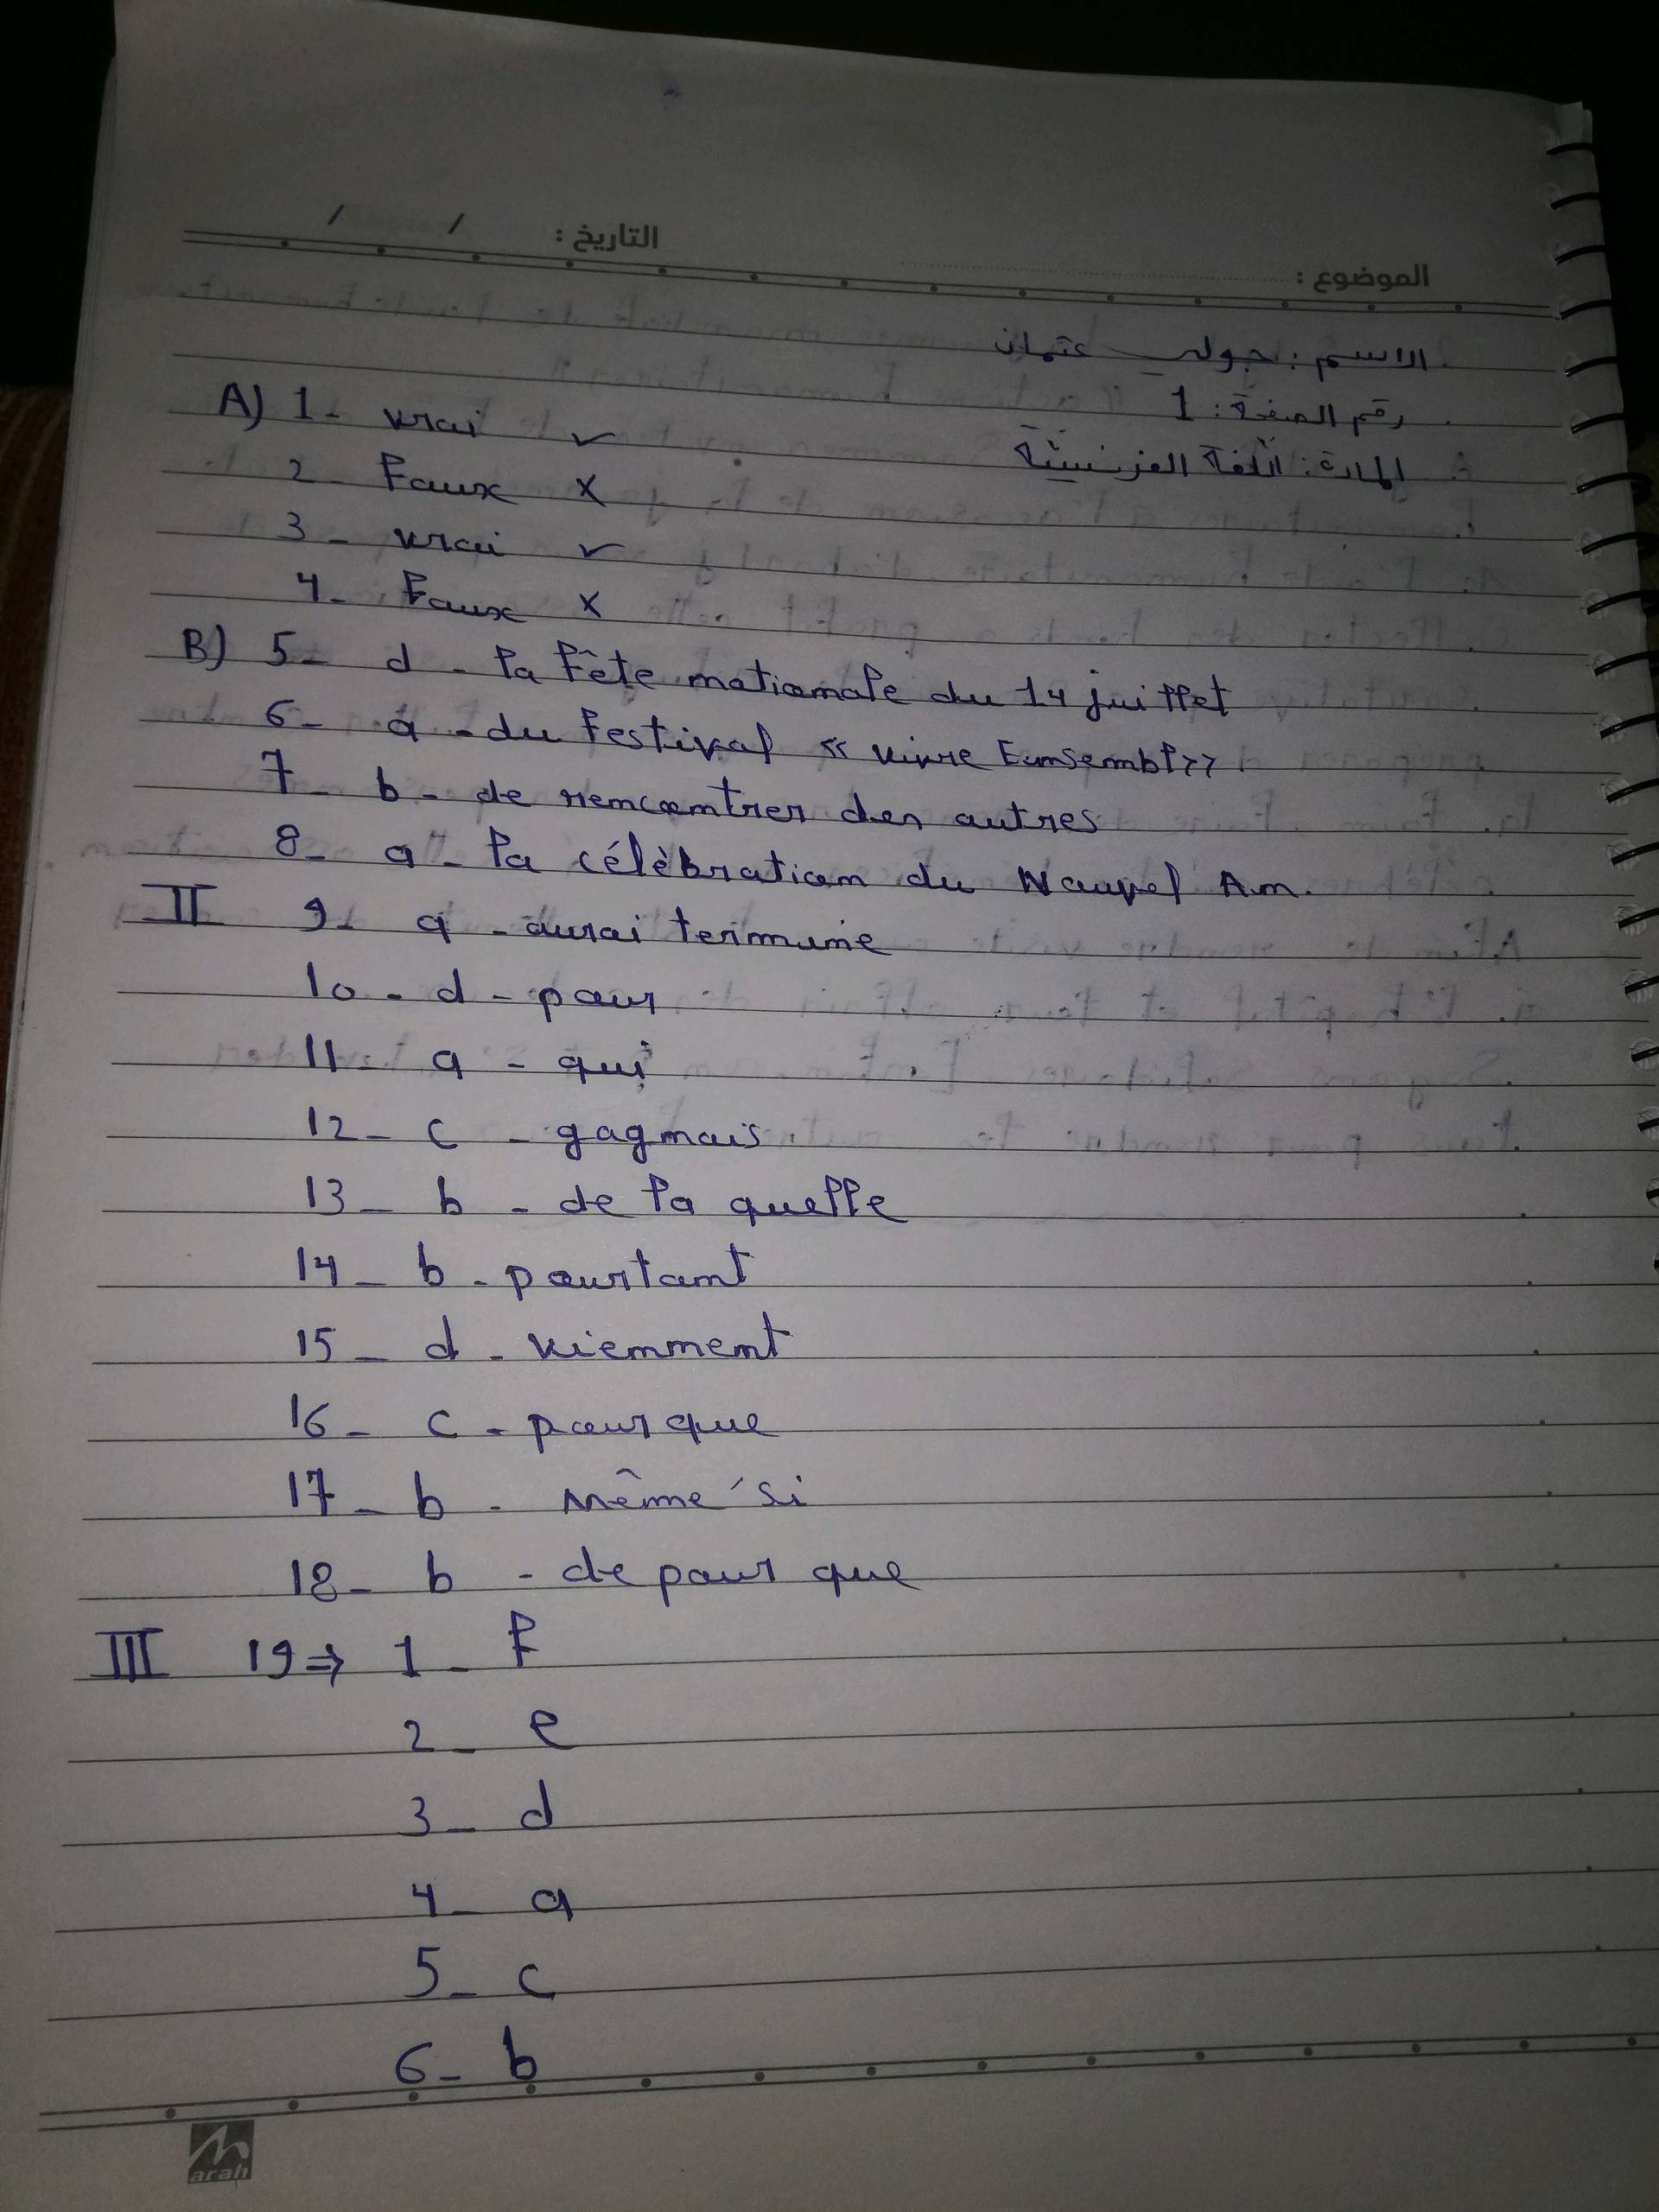 الموضوع : التاريخ : / /
الاسم : جولي عثمان
رقم الصفحة : 1
المادة : اللغة الفرنسية
A) 1- vrai ✓
2- Faux x
3- vrai ✓
4- Faux x
B) 5- d - la Fête nationale du 14 juillet
6- a - du Festival « vivre Eunsembl»
7- b - de rencontrer des autres
8- a - la célèbration du Nouvel An.
II 9- a - aurai terminé
10- d - pour
11- a - qui
12- c - gagnais
13- b - de la quelle
14- b - pourtant
15- d - viennent
16- c - pour que
17- b - même si
18- b - de pour que
III 19⇒ 1- F
2- e
3- d
4- a
5- c
6- b
arah